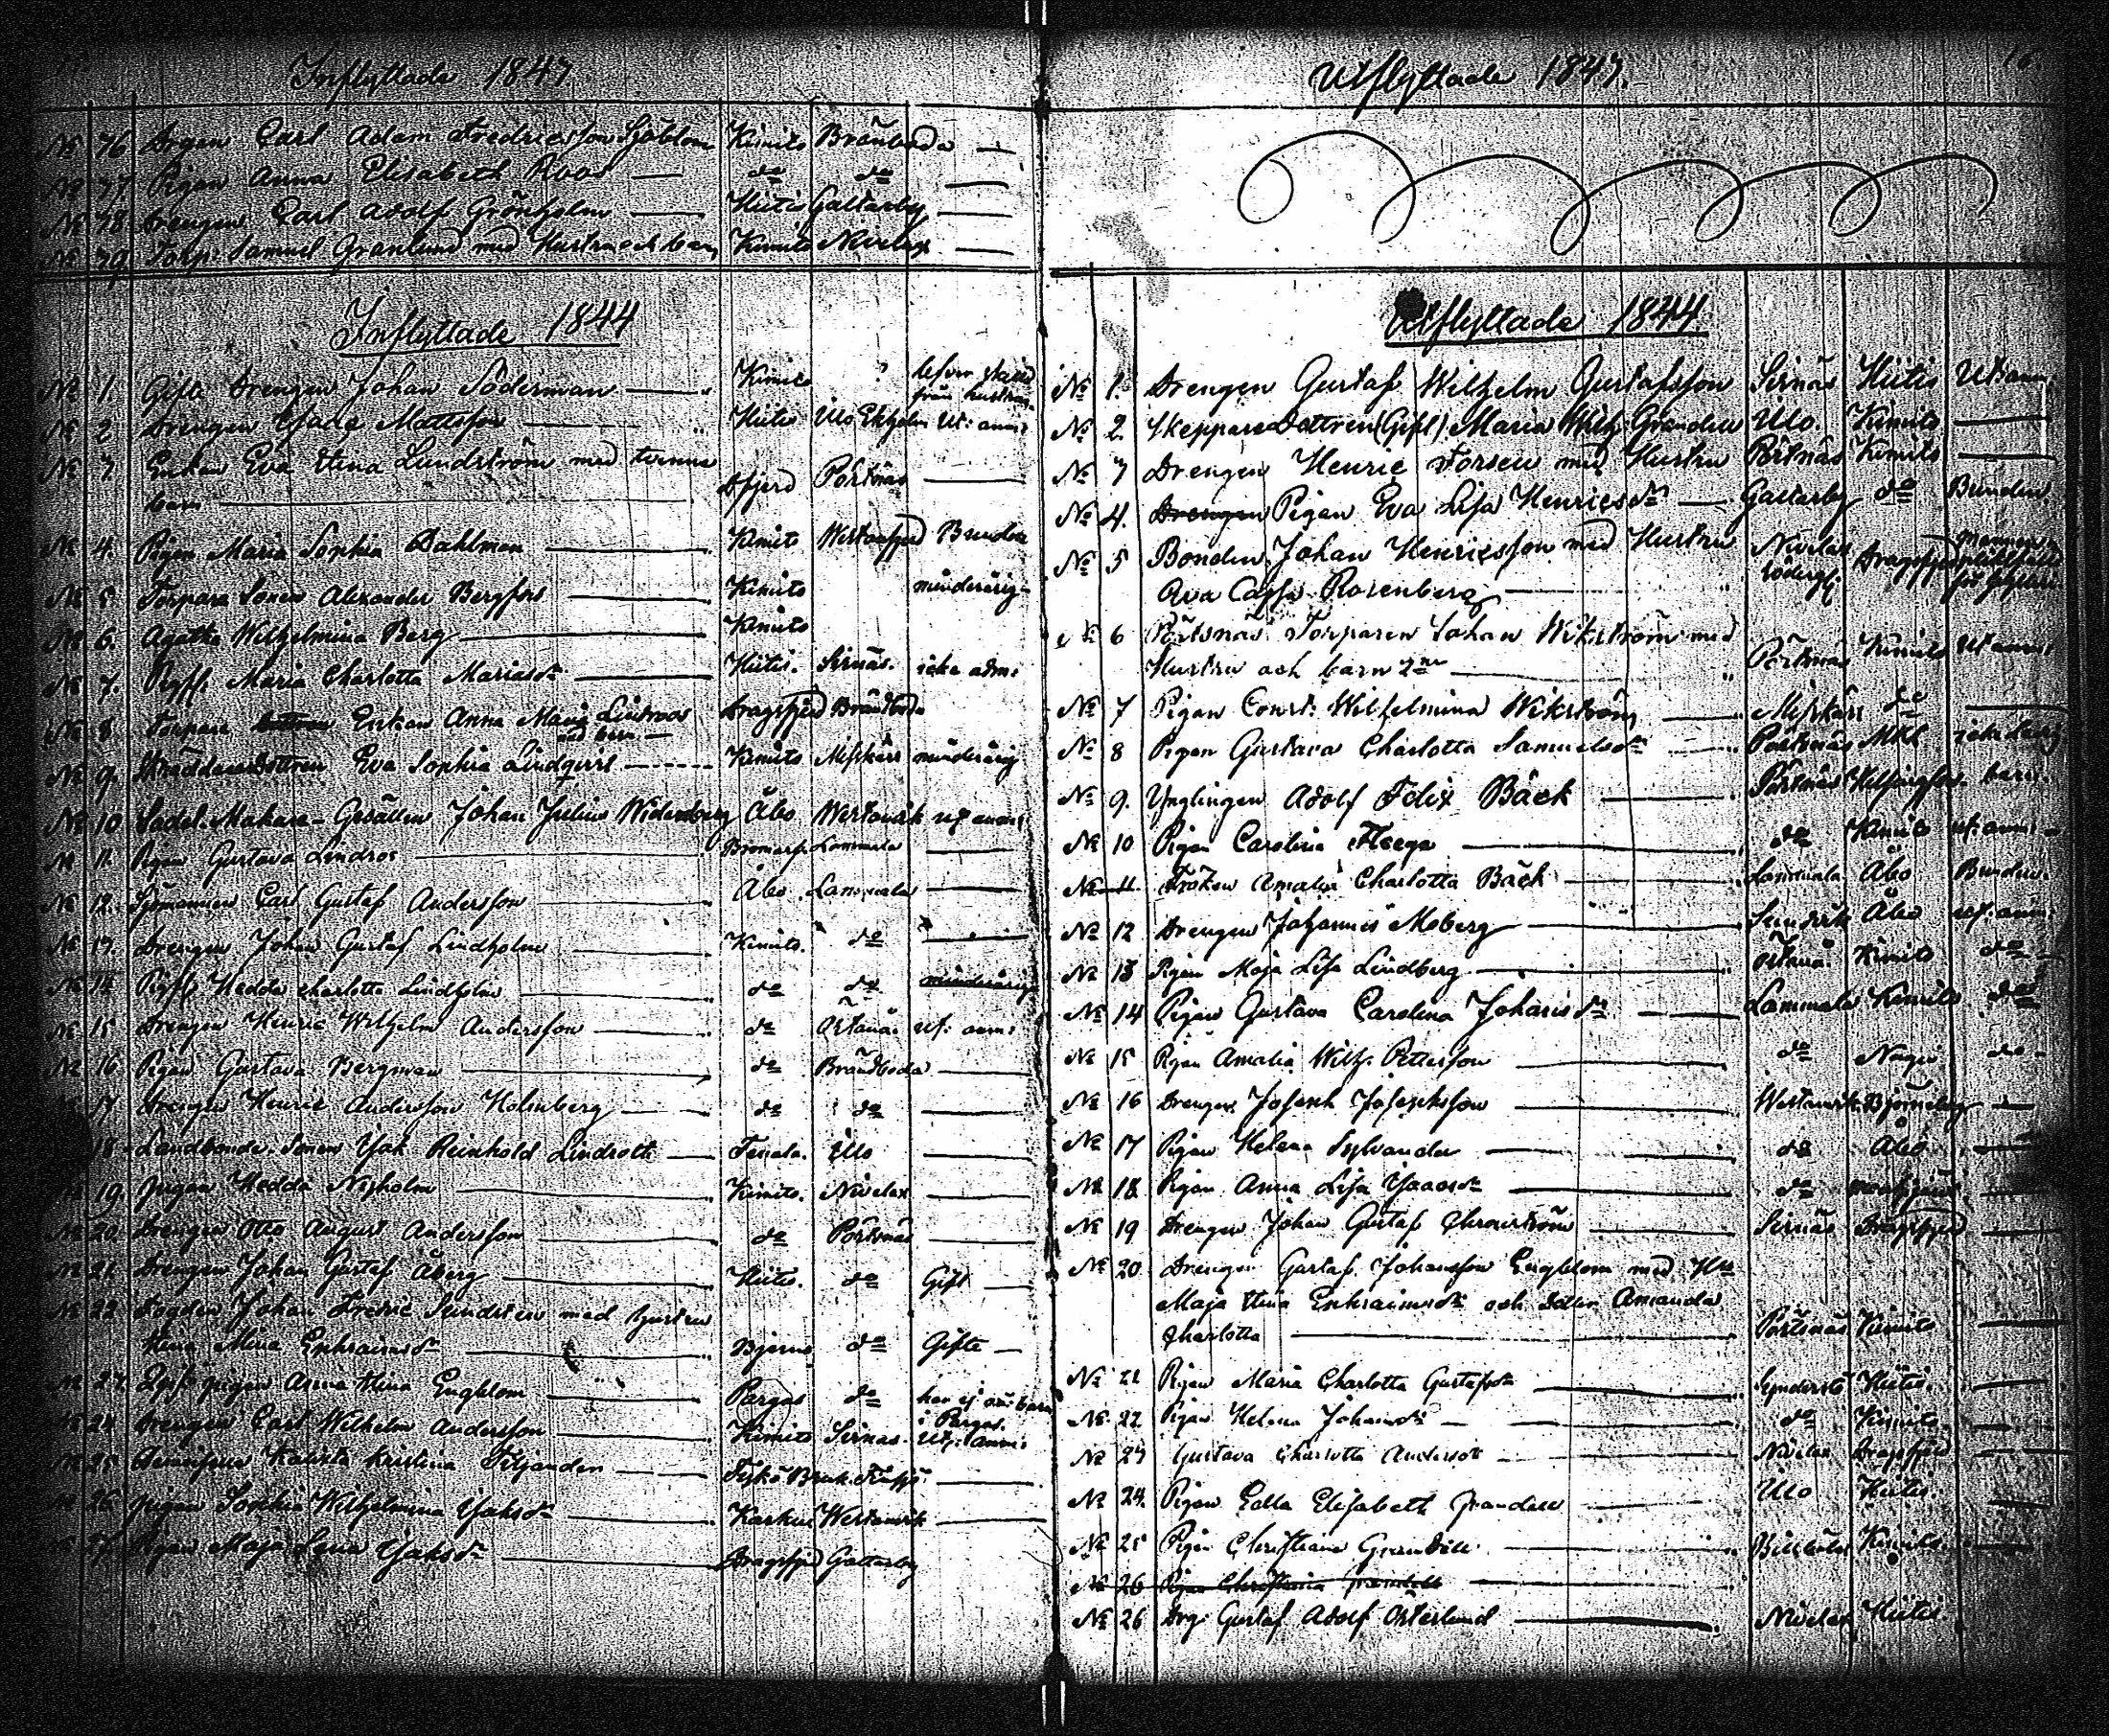 Inflyttade 1843
№ 36 Drgen Carl Adam Fredricsson Sjöblom Kimito Brännboda —
№ 37 Pigan Anna Elisabeth Roos — do do —
№ 38 Drengen Carl Adolf Grönholm — Hiitis Galtarby —
№ 39 Torp: Samuel Granlund med Hustru och barn Kimito Nivelax —
Inflyttade 1844
№ 1. Gifte Drengen Johan Söderman — Kimito ? lefver skild
från hustrun
№ 2 Drengen Isaac Mattsson — Hiitis Ölo Ekholm Ut: anm:
№ 3. Enkan Eva Stina Lundström med tvenne
barn — Dfjerd Pörtnäs —
№ 4. Pigan Maria Sophia Dahlman — Kimito Westanfjerd Bunden
№ 5 Torpare Sonen Alexander Bergfors — Kimito minderårig
№ 6. Agatha Wilhelmina Berg — Kimito
№ 7. Maria Charlotta Mariasdr — Hiitis. Sirnäs. icke adm:
№ 8 Torpare Enkan Anna Maria Lindroos
med barn — Dragsfjerd Brännboda
№ 9. Skräddaredottren Eva Sophia Lindqvist — Kimito Misskärr minderårig
№ 10 Sadel-Makare-Gesällen Johan Julius Widenberg Åbo Westanvik ut anm:
№ 11. Pigan Gustava Lindros — Bromarf Lammala —
№ 12. Sjömannen Carl Gustaf Andersson — Åbo Lammala —
№ 13. Drengen Johan Gustaf Lindholm — Kimito. do —
№ 14 Hedda Charlotta Lindholm — do do minderårig
№ 15 Drengen Henric Wilhelm Andersson — do Östanå ut: anm:
№ 16 Pigan Gustava Bergman — do Brännboda —
17 Drengen Henric Andersson Holmberg — do do —
18 Landbonde-Sonen Isak Reinhold Lindroth — Tenala. Ölo —
№ 19 pigan Hedda Nyholm — Kimito. Nivelax —
№ 20. Drengen Otto August Andersson — do Pörtnäs —
№ 21 Drengen Johan Gustaf Åberg — Hiitis. do Gift —
№ 22 Fogden Johan Fredric Sundsten med hustru
Mina Ephraimsdr — Bjerno do Gifte —
№ 23. pigan Anna Stina Engblom — Pargas do har ej barn
i Pargas.
№ 24 Drengen Carl Wilhelm Andersson — Kimito Sirnäs. Ut: anm:
№ 25 Kristina — Fiskö Bruk —
№ 26 pigan Sophia Wilhelmina Isaksdr — Karkus Westanvik —
27. Pigan Maja Lena Isaksdr — Dragsfjerd Galtarby
Utflyttade 1843.
16.
Utflyttade 1844
№ 1. Drengen Gustaf Wilhelm Gustafsson Sirnäs Hiitis Ut anm:
№ 2. Skeppare Dottren (Gift) Maria Wilh: Grandell Ölo Kimito —
№ 3 Drengen Henric Forsen med Hustru Pörtnäs Kimito —
№ 4. Drengen Pigan Eva Lisa Henricsdr — Galtarby do Bunden.
№ 5 Bonden Johan Henricsson med Hustru
Eva Cajsa Rosenberg — Nivelax Söderg: Dragsfjerd
№ 6 Pörtnäs Torparen Johan Wikström med
Hustru och barn 2ne — Pörtnäs Kimito ut anm:
№ 7 Pigan Const: Wilhelmina Wikström — Misskärr do —
№ 8 Pigan Gustava Charlotta Samuelsdr — Pörtnäs
№ 9. Ynglingen Adolf Felix Bäck — Pörtnäs Helsingfors barn.
№ 10 Pigan Carolina Fleege — do Kimito ut: anm:
№ 11 Fröken Amalia Charlotta Bäck — Lammala Åbo Bunden.
№ 12 Drengen Johannes Moberg — Åbo ut: anm:
№ 13 Pigan Maja Lisa Lindberg — Östanå Kimito do
№ 14 Pigan Gustava Carolina Johansdr — Lammala Kimito do
№ 15 Pigan Amalia Wilh. Pettersson — do Nagu do
№ 16 Drengen Joseph Josephsson — Westanvik Björneborg —
№ 17 Pigan Helena Sylvander — do Åbo —
№ 18 Pigan Anna Lisa Isaacsdr — do
№ 19 Drengen Johan Gustaf — Sirnäs Dragsfjerd —
№ 20 Drengen Gustaf Johansson Engblom med Hu
Maja Stina Ephraimsdr och dotter Amanda
Charlotta — Pörtnäs Kimito —
№ 21 Pigan Maria Charlotta Gustafsdr — Hiitis —
№ 22 Pigan Helena Johansdr — do Kimito —
№ 23 Gustava Charlotta Andersdr — Nivelax Dragsfjerd —
№ 24. Pigan Edla Elisabeth Grandell — Ölo Hiitis —
№ 25 Pigan Christiana Grandell — Kimito —
№ 26 Pigan Christiana Grandell —
№ 26 Drg: Gustaf Adolf Österlund — Nivelax Hiitis